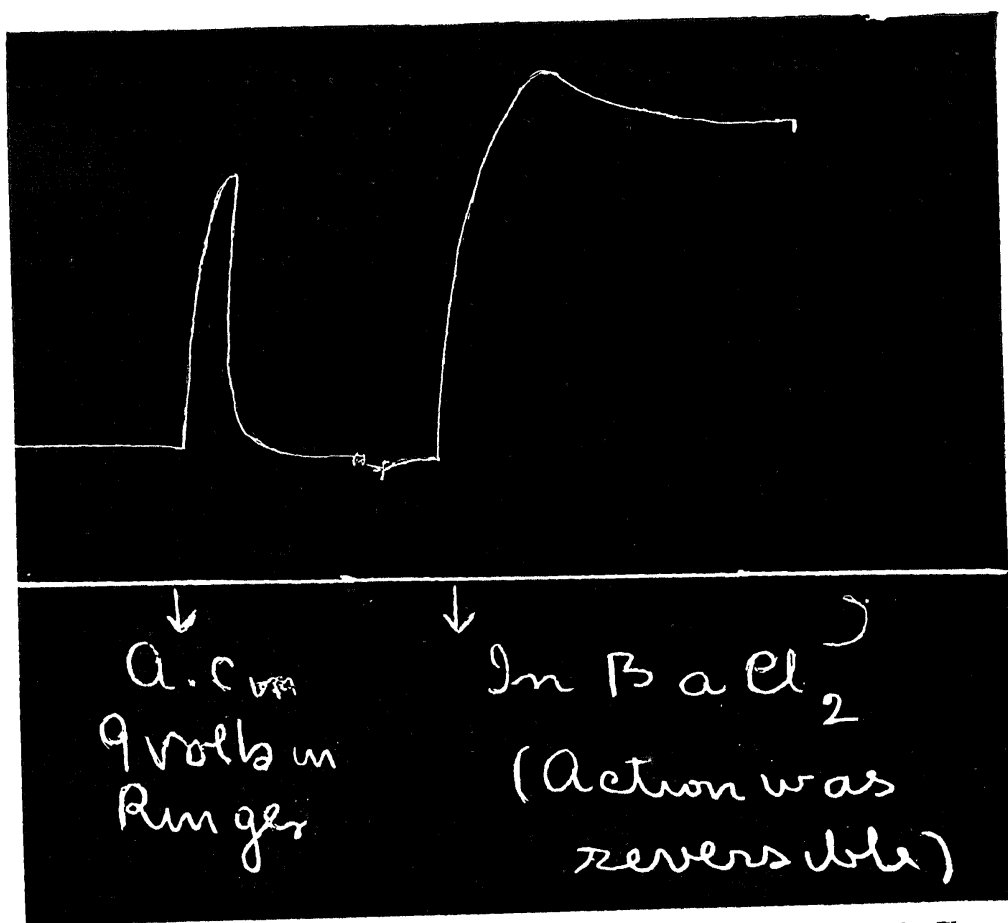 A.C
9 volts in
Ringer
In BaCl2
(Action was
reversible)